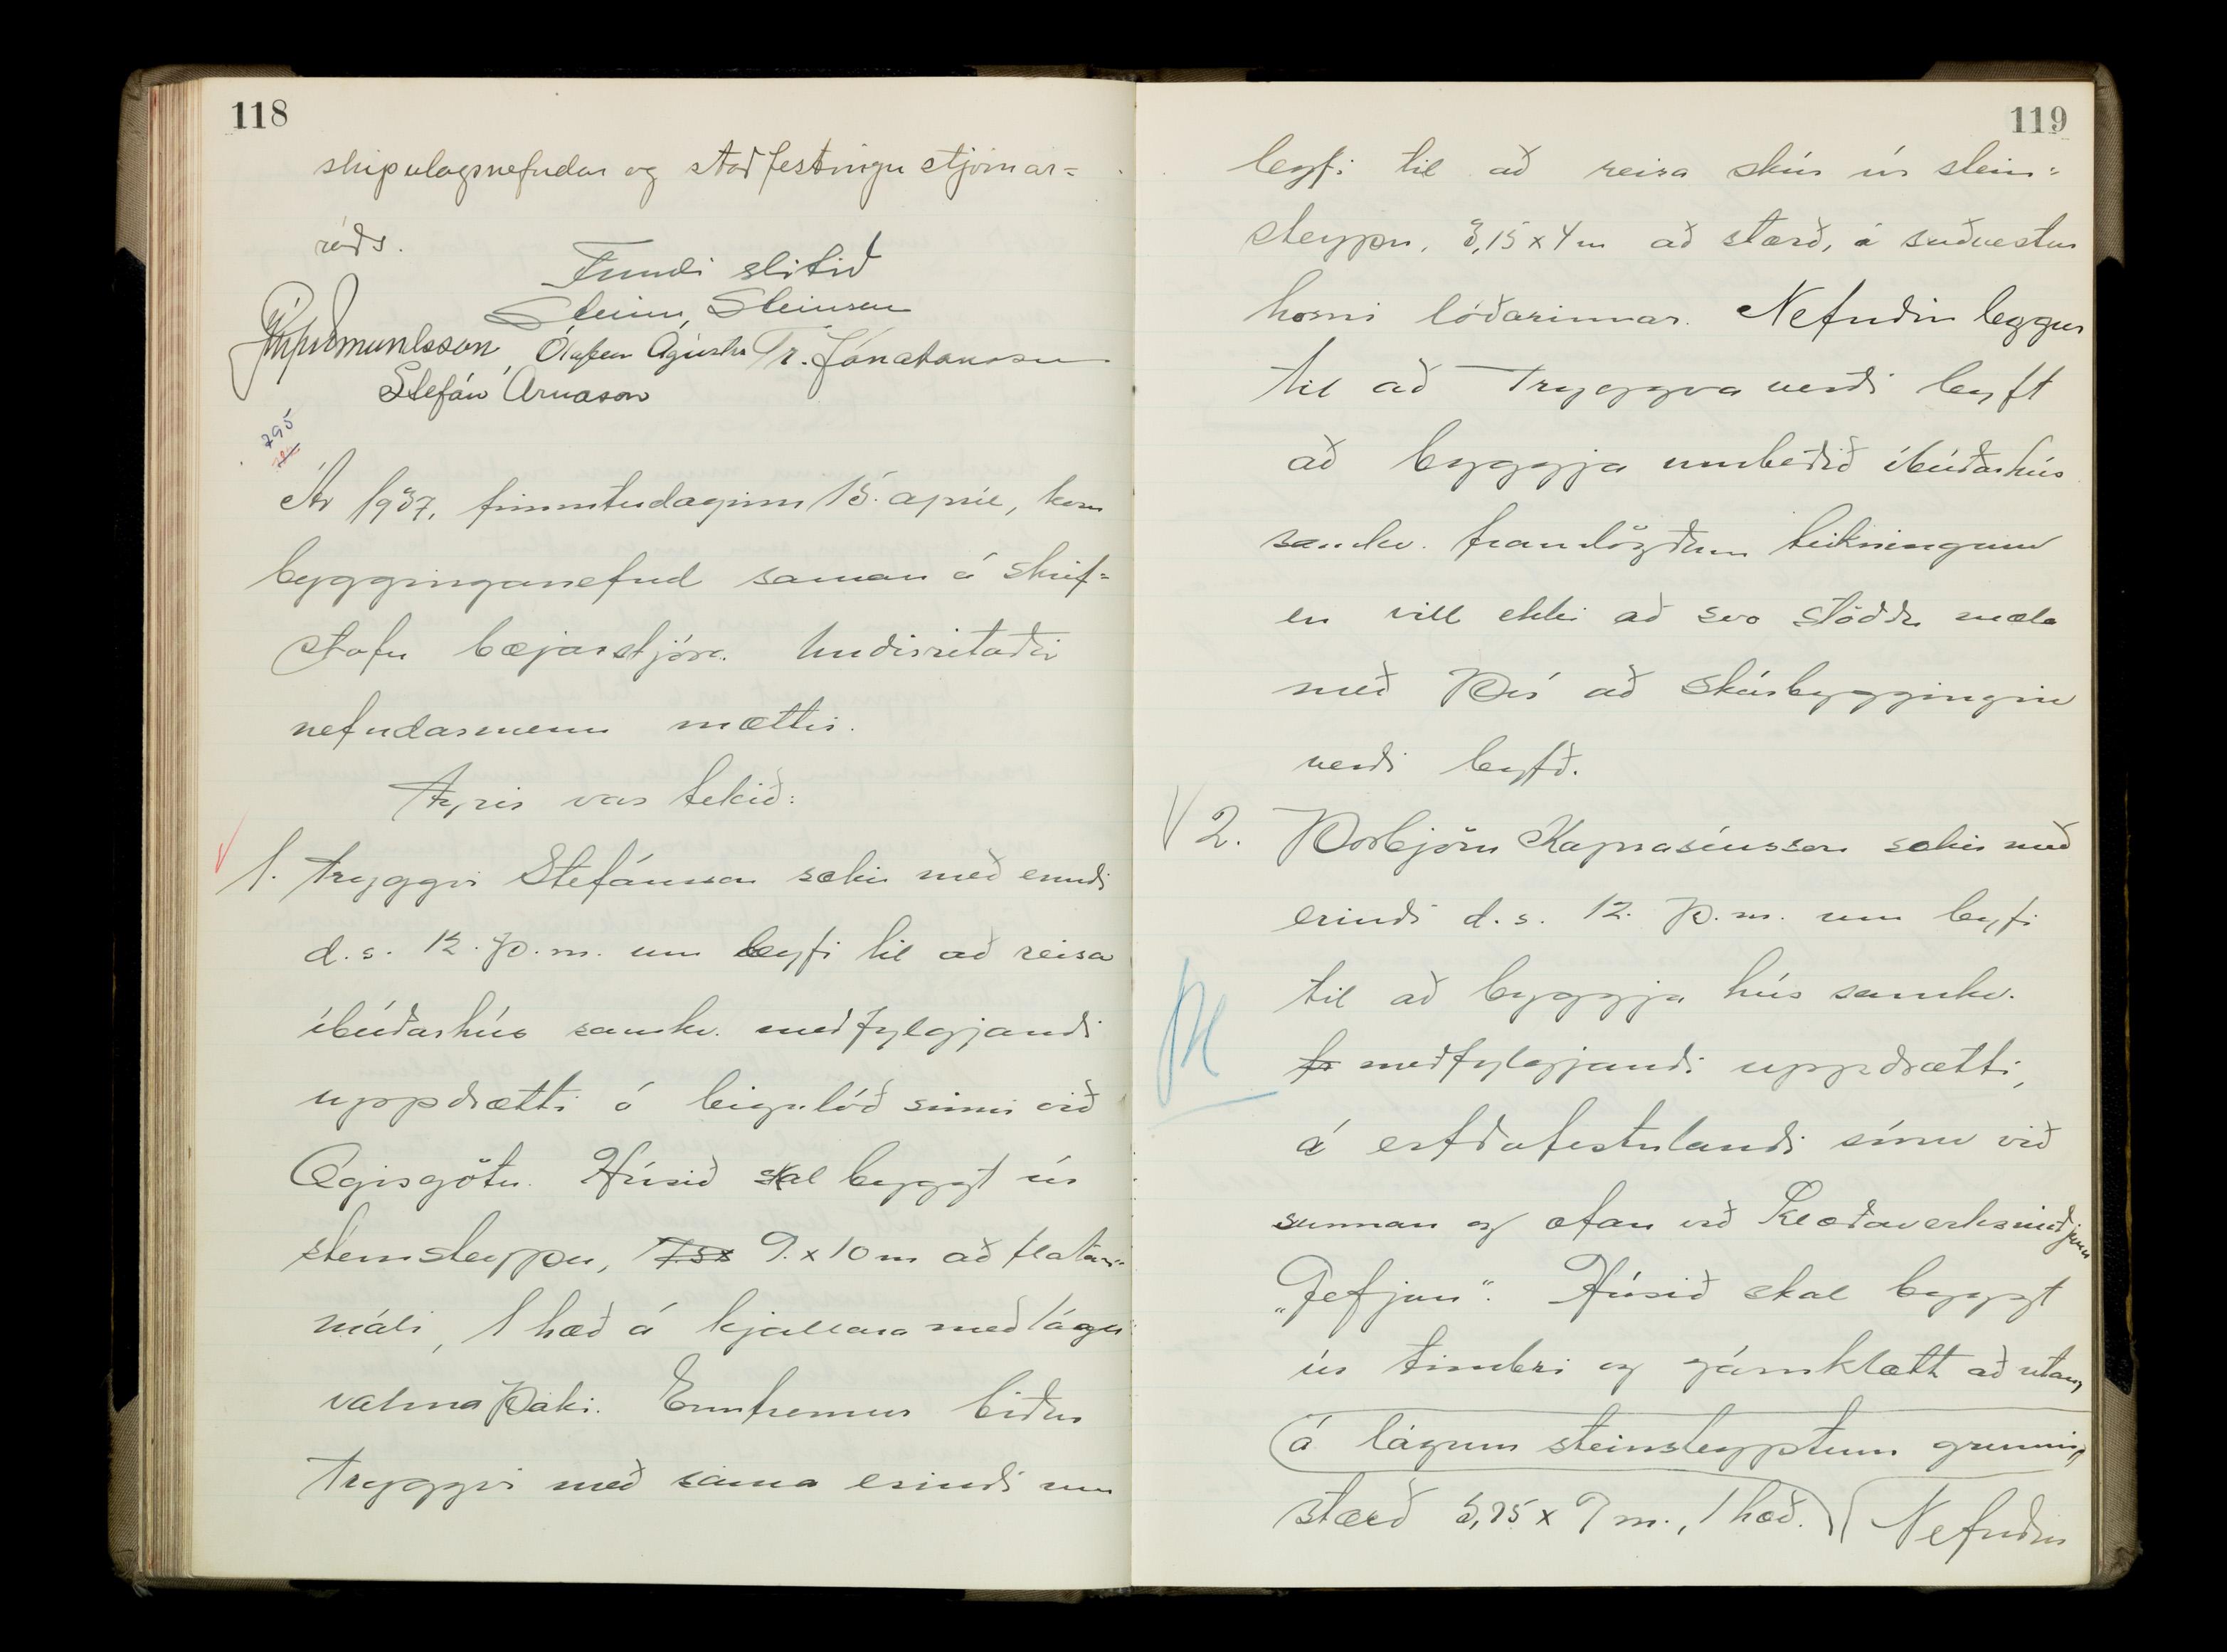 118
skipulagsnefndar og staðfestingu stjórnar=
ráðs.
Fundi slitið
Steinn Steinsen
Ólafur Ágústss Tr. Jónatansson
Stefán Árnason
795
Ár 1937, fimmtudaginn 15. apríl, kom
bygginganefnd saman á skrif=
stofu bæjarstjóra. Undirritaðir
nefndarmenn mættir.
Fyrir var tekið:
1. Tryggvi Stefánsson sækir með erindi
d.s. 12. þ.m. um leyfi til að reisa
íbúðarhús samkv. meðfylgjandi
uppdrætti á leigulóð sinni við
Ægisgötu. Húsið skal byggt úr
steinsteypu, 9. x 10 m að flatar=
máli, 1 hæð á kjallara með lágu
valmaþaki. Ennfremur biður
Tryggvi með sama erindi um
119
leyfi til að reisa skúr úr stein=
steypu, 3,15 x 4 m að stærð, á suðvestur
horni lóðarinnar. Nefndin leggur
til að Tryggva verði leyft
að byggja umbeðið íbúðarhús
samkv. framlögðum teikningum
en vill ekki að svo stöddu mæla
með því að skúrbyggingin
verði leyfð.
2. Þorbjörn Kaprasíusson sækir með
erindi d.s. 12. þ.m. um leyfi
til að byggja hús samkv.
fr meðfylgjandi uppdrætti,
á erfðafestulandi sínu við
sunnan og ofan við Klæðaverksmiðjuna
„Gefjun“. Húsið skal byggt
úr timbri og járnklætt að utan,
á lágum steinsteyptum grunni,
stærð 5,75 x 7 m., 1 hæð. Nefndin